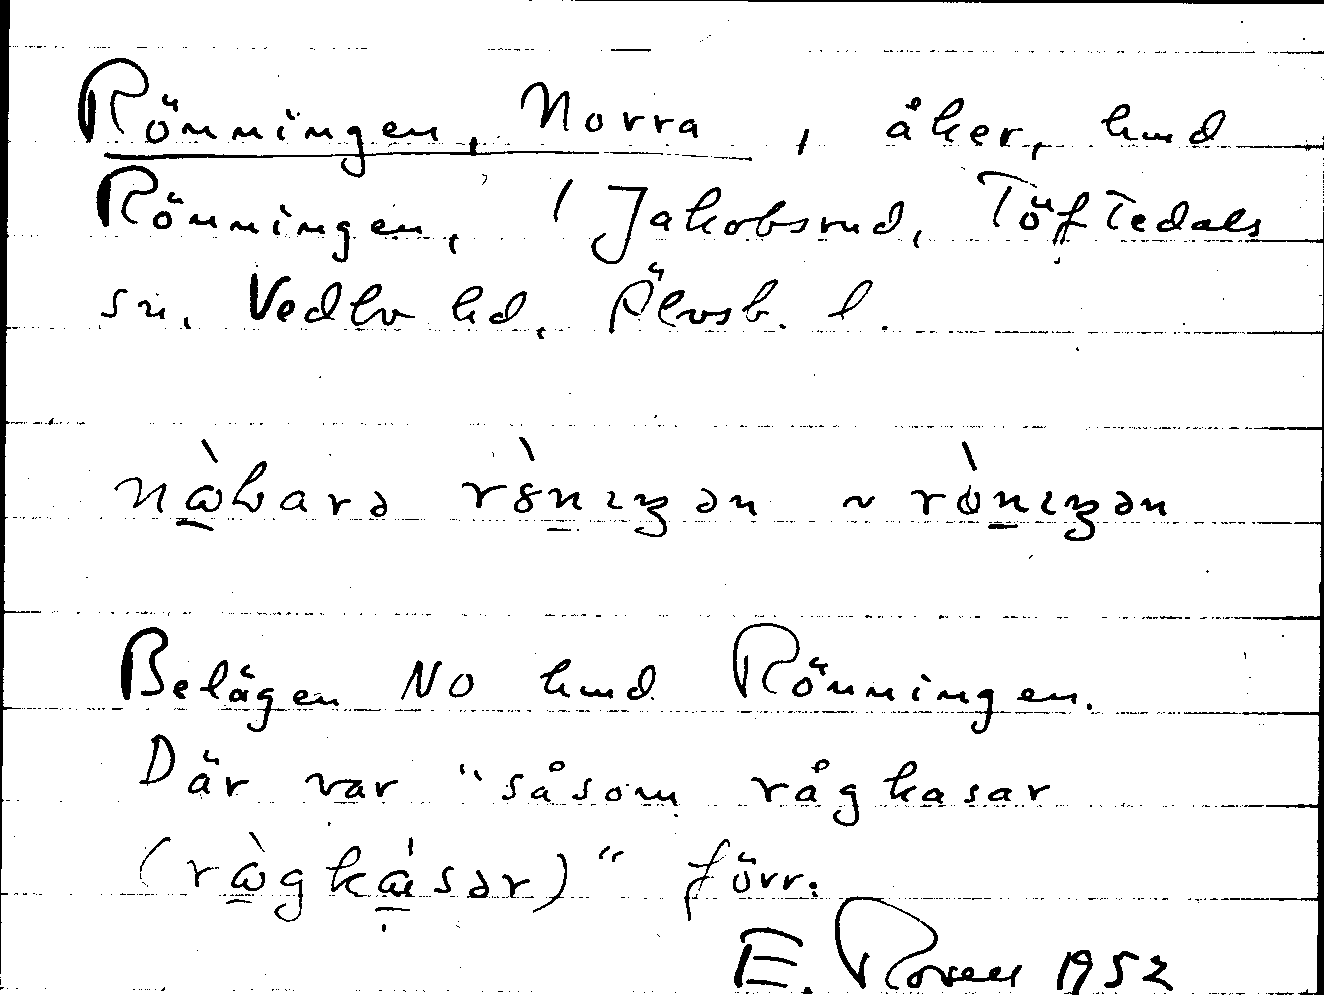 Rönningen, Norra, åker, hmd
Rönningen, i Jakobsrud, Töftedals
sn. Vedbo hd. Älvsb. l.
Belägen NO hmd Rönningen.
Där var "såsom rågkasar
(ràgkásər)" förr.
E. Rosell 1952